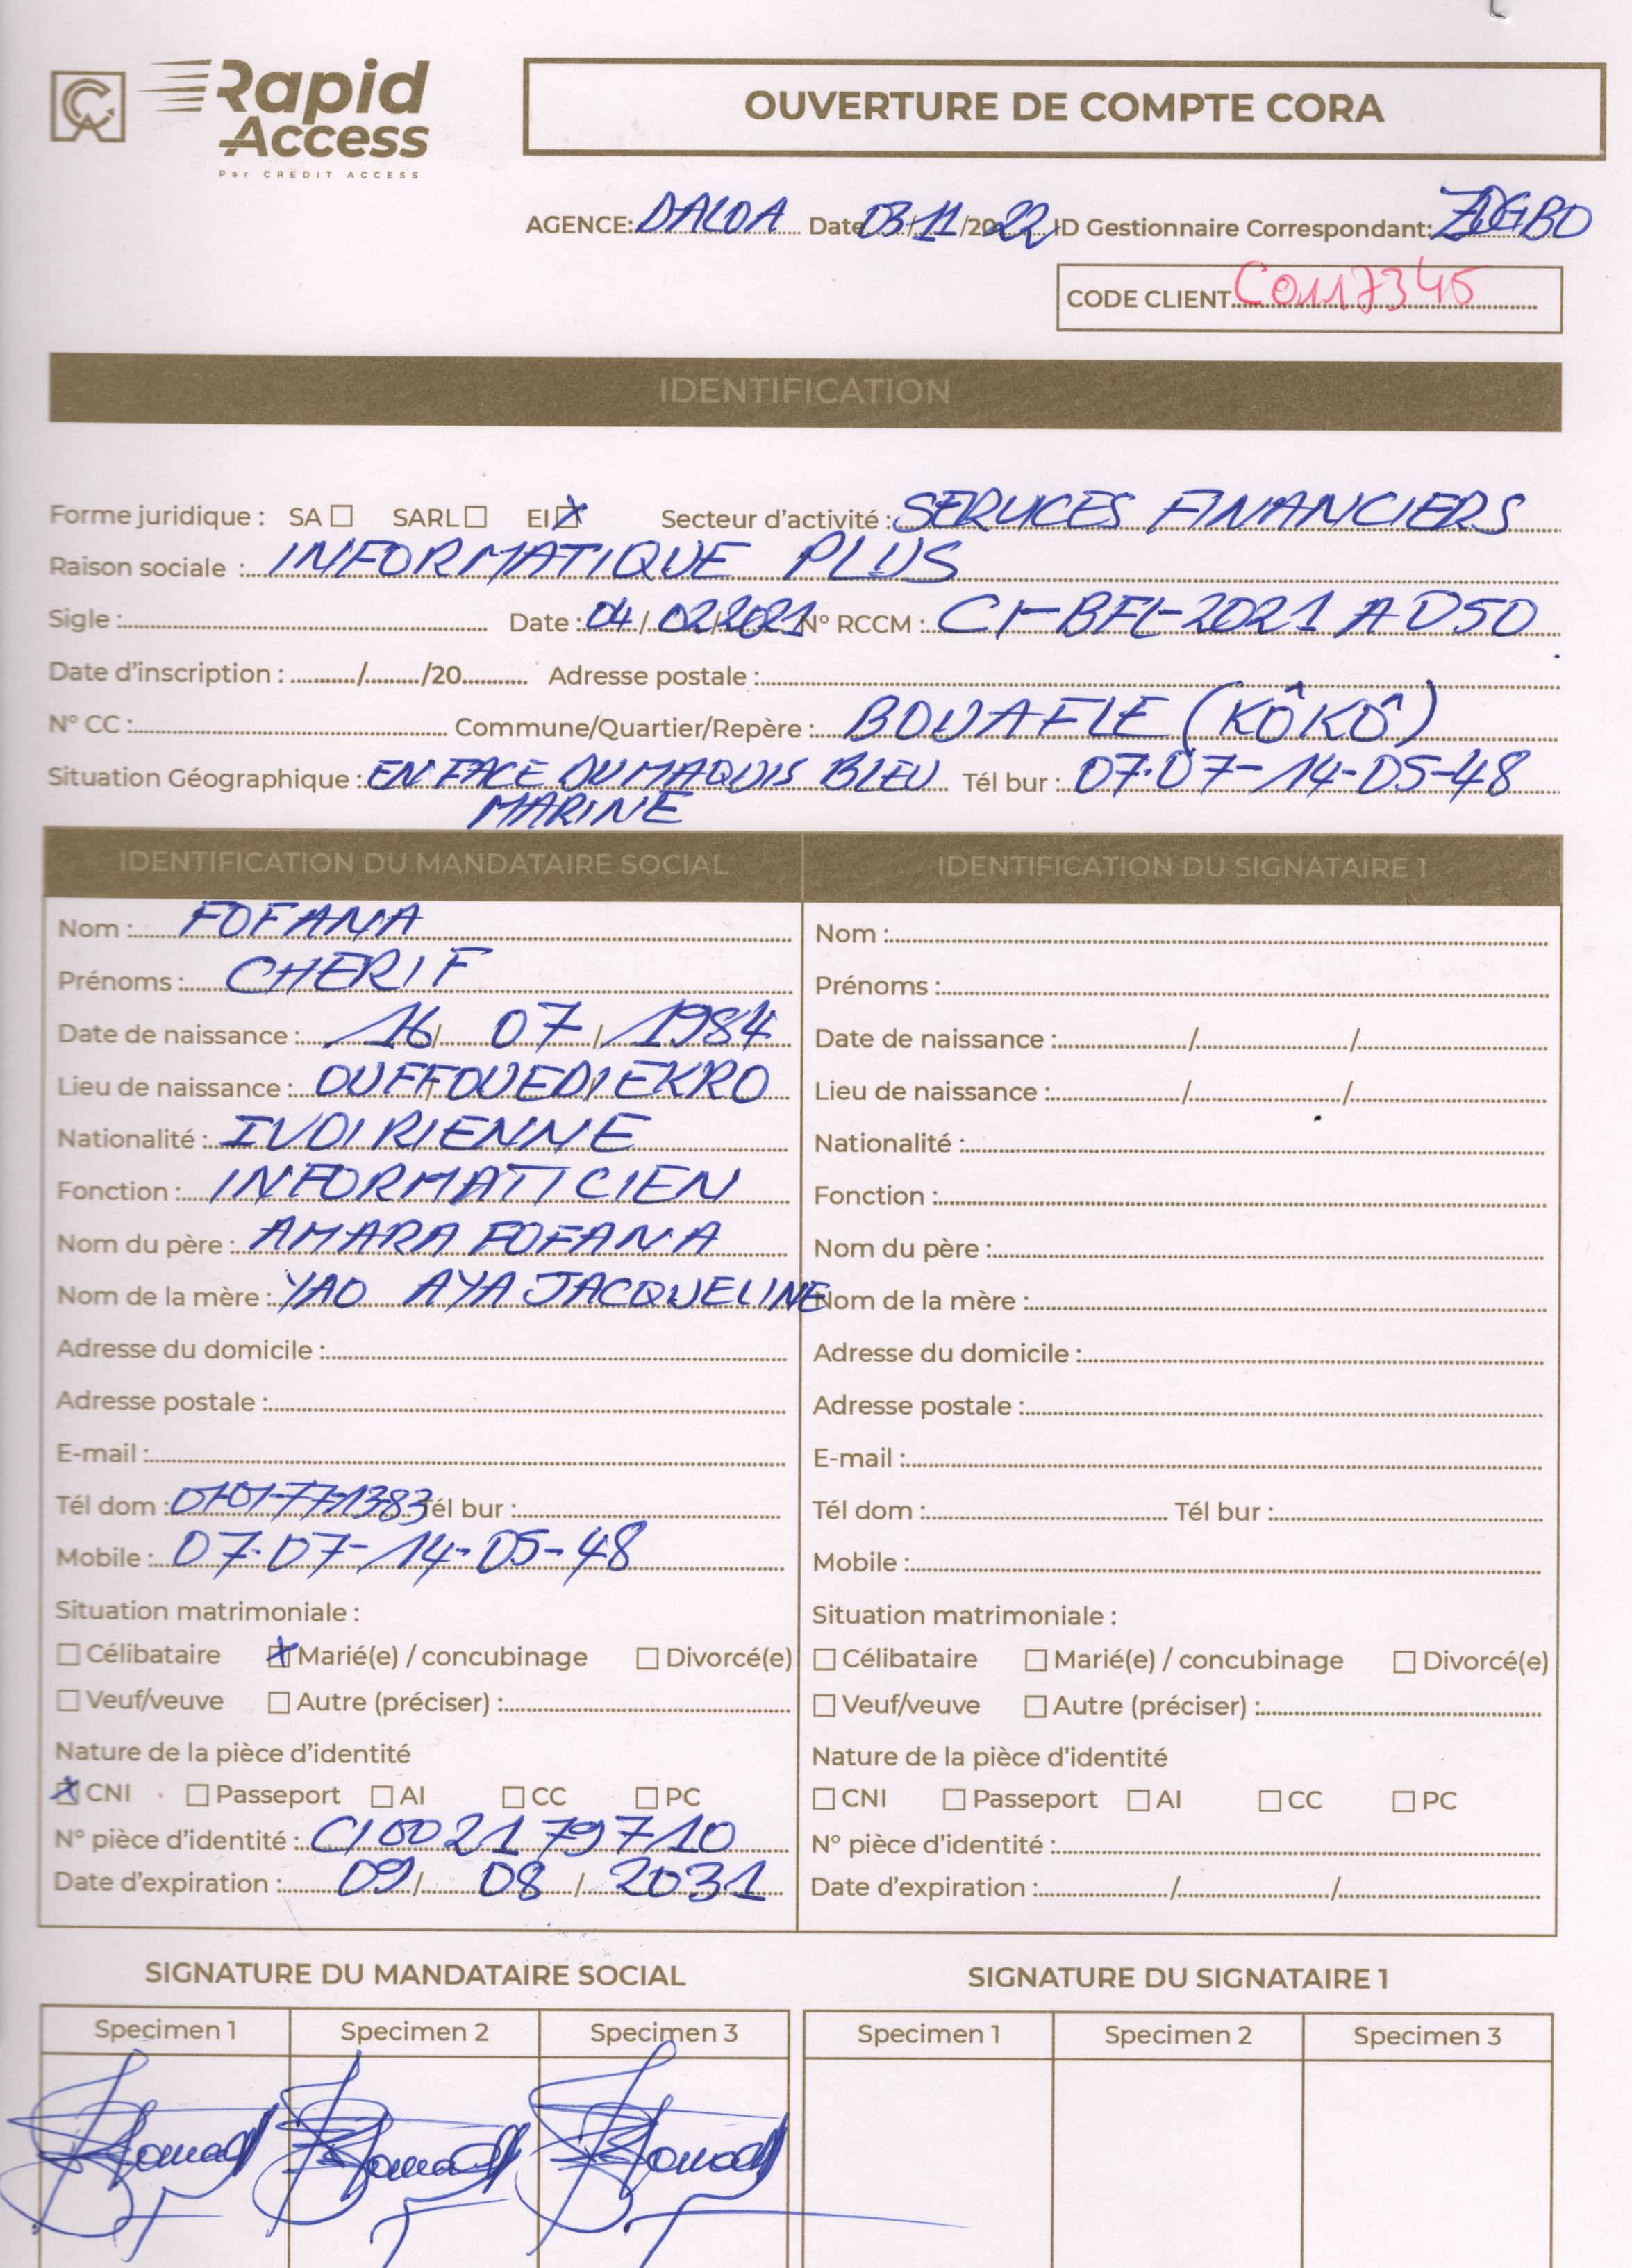 Rapid
Access
Par CREDIT ACCESS
OUVERTURE DE COMPTE CORA
AGENCE: DALOA Date 03/11/2022 ID Gestionnaire Correspondant: ZOGBO
CODE CLIENT C0117345
IDENTIFICATION
Forme juridique : SA ☐ SARL ☐ EI ☒ Secteur d'activité : SERVICES FINANCIERS
Raison sociale : INFORMATIQUE PLUS
Sigle : Date : 04/02/2021 N° RCCM : CI-BFL-2021 A D50
Date d'inscription : / /20 Adresse postale :
N° CC : Commune/Quartier/Repère : BOUAFLE (KÔKÔ)
Situation Géographique : EN FACE DU MAQUIS BLEU Tél bur : 07-07-14-05-48
MARINE
IDENTIFICATION DU MANDATAIRE SOCIAL
Nom : FOFANA
Prénoms : CHERIF
Date de naissance : 16/ 07 / 1984
Lieu de naissance : OUFFOUEDIEKRO
Nationalité : IVOIRIENNE
Fonction : INFORMATICIEN
Nom du père : AMARA FOFANA
Nom de la mère : YAO AYA JACQUELINE
Adresse du domicile :
Adresse postale :
E-mail :
Tél dom : 01-01-77-13-83 Tél bur :
Mobile : 07-07-14-05-48
Situation matrimoniale :
☐ Célibataire ☒ Marié(e) / concubinage ☐ Divorcé(e)
☐ Veuf/veuve ☐ Autre (préciser) :
Nature de la pièce d'identité
☒ CNI ☐ Passeport ☐ AI ☐ CC ☐ PC
N° pièce d'identité : CI002179710
Date d'expiration : 09/ 08 / 2031
IDENTIFICATION DU SIGNATAIRE 1
Nom :
Prénoms :
Date de naissance : / /
Lieu de naissance : / /
Nationalité :
Fonction :
Nom du père :
Nom de la mère :
Adresse du domicile :
Adresse postale :
E-mail :
Tél dom : Tél bur :
Mobile :
Situation matrimoniale :
☐ Célibataire ☐ Marié(e) / concubinage ☐ Divorcé(e)
☐ Veuf/veuve ☐ Autre (préciser) :
Nature de la pièce d'identité
☐ CNI ☐ Passeport ☐ AI ☐ CC ☐ PC
N° pièce d'identité :
Date d'expiration : / /
SIGNATURE DU MANDATAIRE SOCIAL
Specimen 1 Specimen 2 Specimen 3
SIGNATURE DU SIGNATAIRE 1
Specimen 1 Specimen 2 Specimen 3